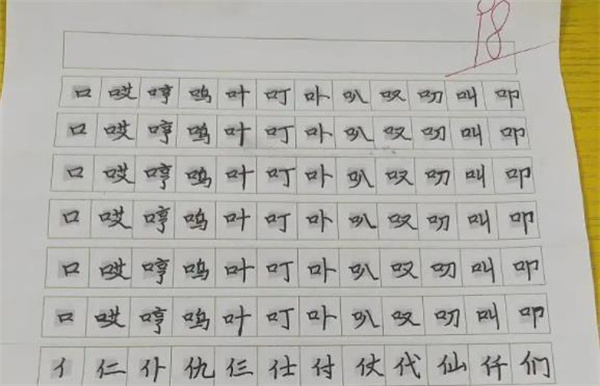 98
口哎哼呜叶叮卟叭叹叨叫叩
口哎哼呜叶叮卟叭叹叨叫叩
口哎哼呜叶叮卟叭叹叨叫叩
口哎哼呜叶叮卟叭叹叨叫叩
口哎哼呜叶叮卟叭叹叨叫叩
口哎哼呜叶叮卟叭叹叨叫叩
亻仁仆仇仨仕付仗代仙仟们